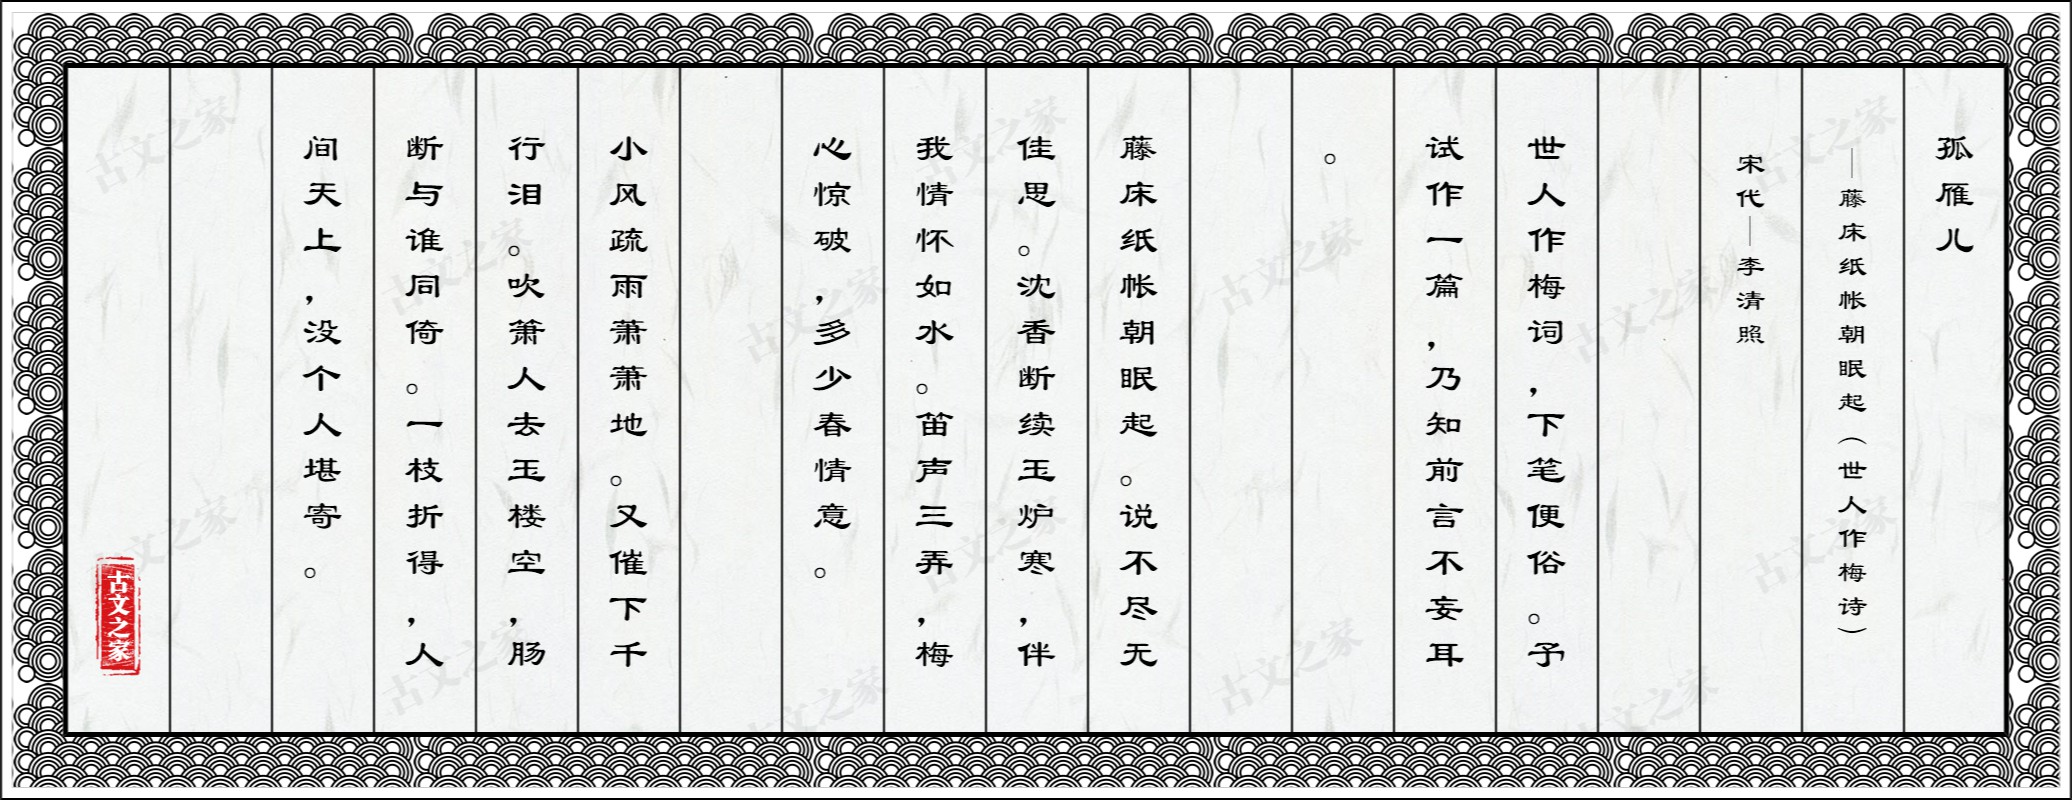 孤雁儿
——藤床纸帐朝眠起（世人作梅诗）
宋代——李清照
世人作梅词，下笔便俗。予
试作一篇，乃知前言不妄耳
。
藤床纸帐朝眠起。说不尽无
佳思。沈香断续玉炉寒，伴
我情怀如水。笛声三弄，梅
心惊破，多少春情意。
小风疏雨萧萧地。又催下千
行泪。吹箫人去玉楼空，肠
断与谁同倚。一枝折得，人
间天上，没个人堪寄。
古文之家